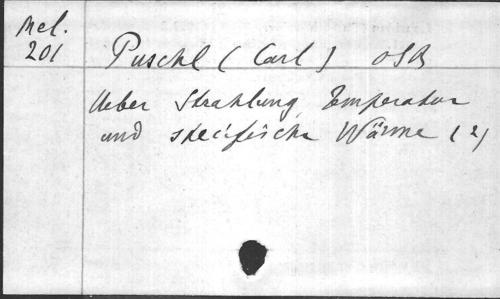 Mel.
201
Puschl (Carl) OSB
Ueber Strahlung Temperatur
und specifische Wärme (2)